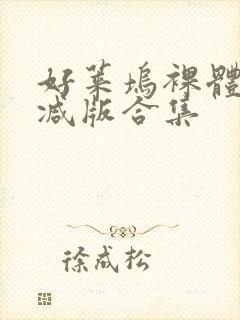 好莱坞裸體
减版合集
徐成松